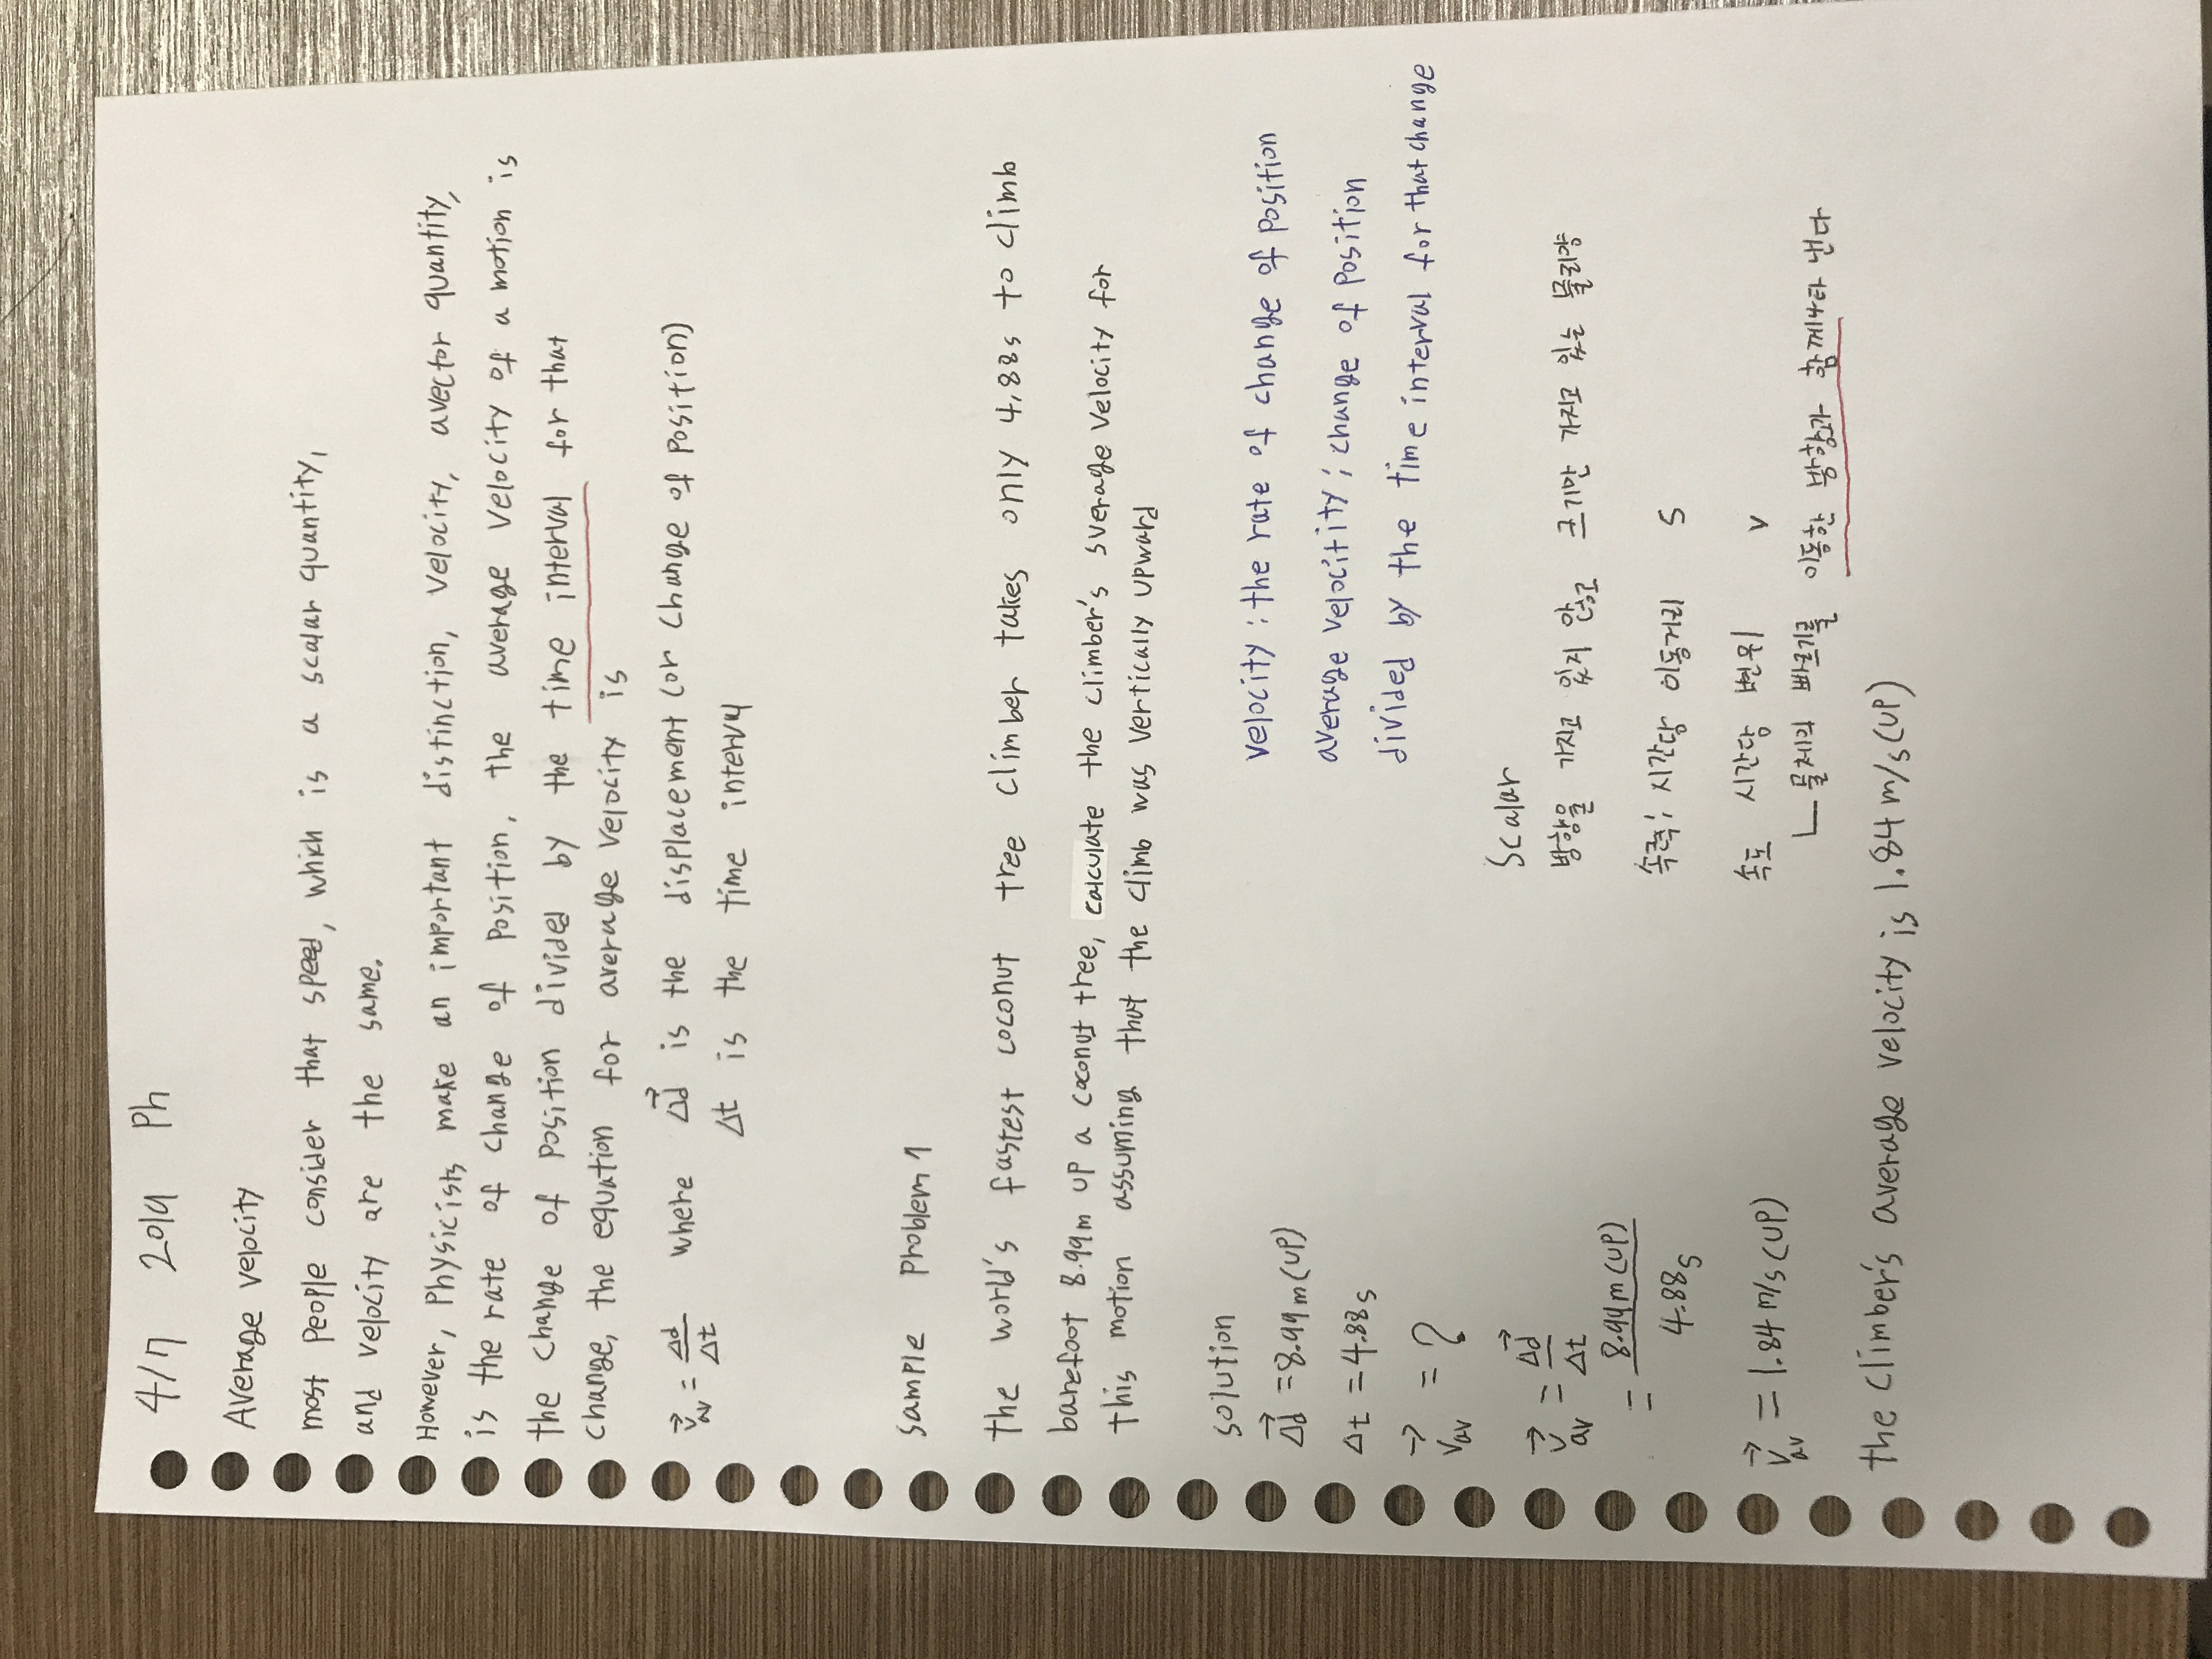 4/17 2019 Ph
Average velocity
most people consider that speed, which is a scalar quantity,
and velocity are the same.
However, Physicists make an important distinction, Velocity, avector quantity,
is the rate of change of position, the average velocity of a motion is
the change of position divided by the time interval for that
change, the equation for average velocity is
v⃗av = Δd⃗/Δt where Δd⃗ is the displacement (or change of position)
Δt is the time interval
sample problem 1
the world's fastest coconut tree climber takes only 4,88s to climb
barefoot 8.99m up a coconut tree, calculate the climber's sverage velocity for
this motion assuming that the climb was vertically upward
solution
Δd⃗ = 8.99m(up)
Δt = 4.88s
v⃗av = ?
v⃗av = Δd⃗/Δt
= 8.99m(up)/4.88s
v⃗av = 1.84 m/s(up)
velocity : the rate of change of position
average velocitity ; change of position
divided by the time interval for that change
Scalar
방향을 가지고 있지 않고 크기만 가지고 있는 물리량
속력; 시간당 이동거리 S
속도 시간당 변위 v
물체의 빠르기를 이동한 방향과 함께 나타 낸다
the climber's average velocity is 1.84 m/s(up)